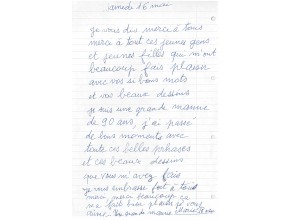 samedi 16 mai
je vous dis merci à tous
merci à tout ces jeunes gens
et jeunes filles qui m'ont
beaucoup fais plaisir
avec vos si bons mots
et vos beaux dessins
je suis une grande mamie
de 90 ans, j'ai passé
de bons moments avec
toute ces belles phrases
et ces beaux dessins
que vous m'avez fais
je vous embrasse fort à tous
merci beaucoup
me fait bien plaisir je vous
aime